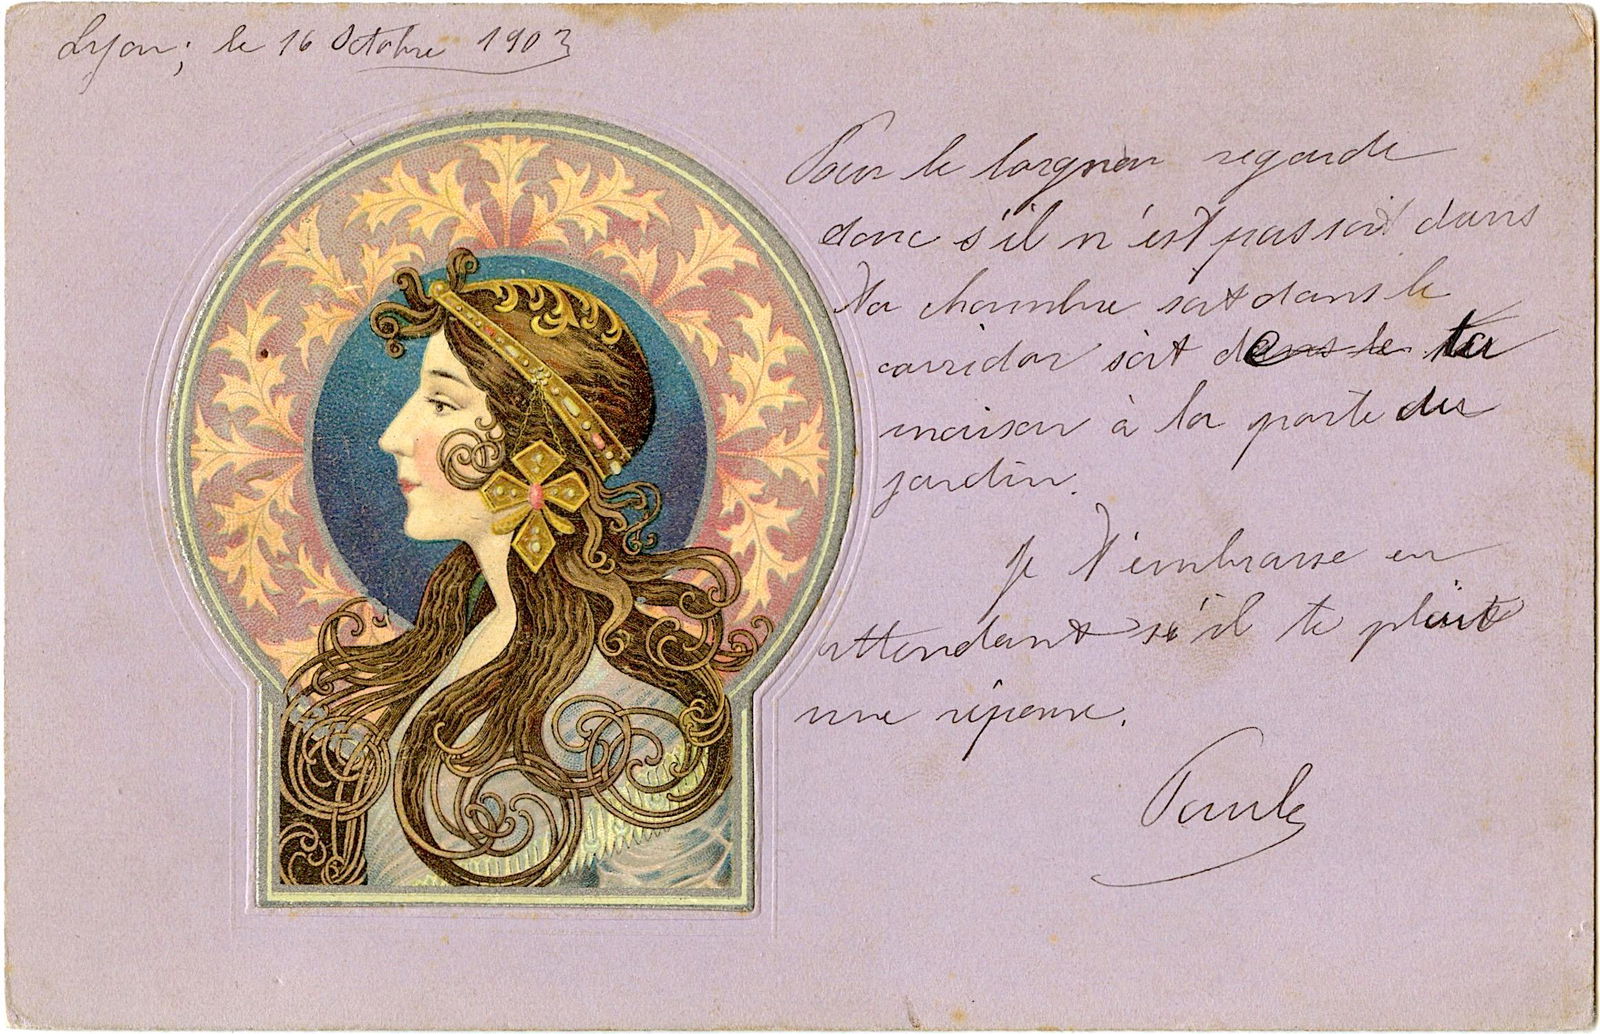 Lyon; le 16 Octobre 1903
Pour le lorgnon regarde
donc s'il n'est pas soit dans
ta chambre soit dans le
corridor soit dans le la
maison à la porte du
jardin.
Je t'embrasse en
attendant s'il te plait
une réponse.
Paule